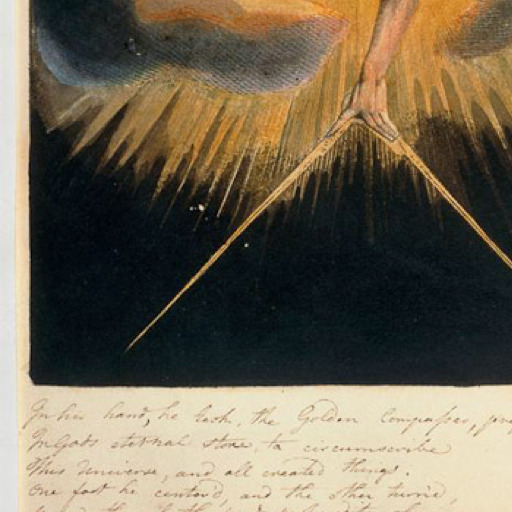 In his hand, he took, the Golden Compasses,
In Gods eternal store, to circumscribe
This Universe, and all created things.
One foot he center'd, and the other turn'd,